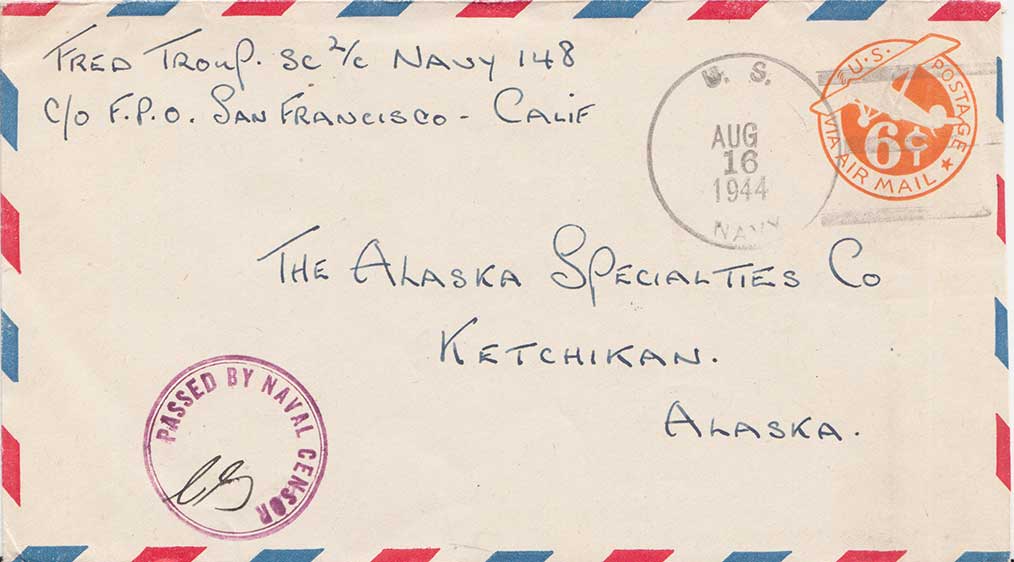 FRED TROUP. SC 2/C NAVY 148
C/O F.P.O. SAN FRANCISCO - CALIF
U. S.
AUG
16
1944
NAVY
U.S. POSTAGE
6¢
VIA AIR MAIL
THE ALASKA SPECIALTIES CO
KETCHIKAN.
ALASKA.
PASSED BY NAVAL CENSOR